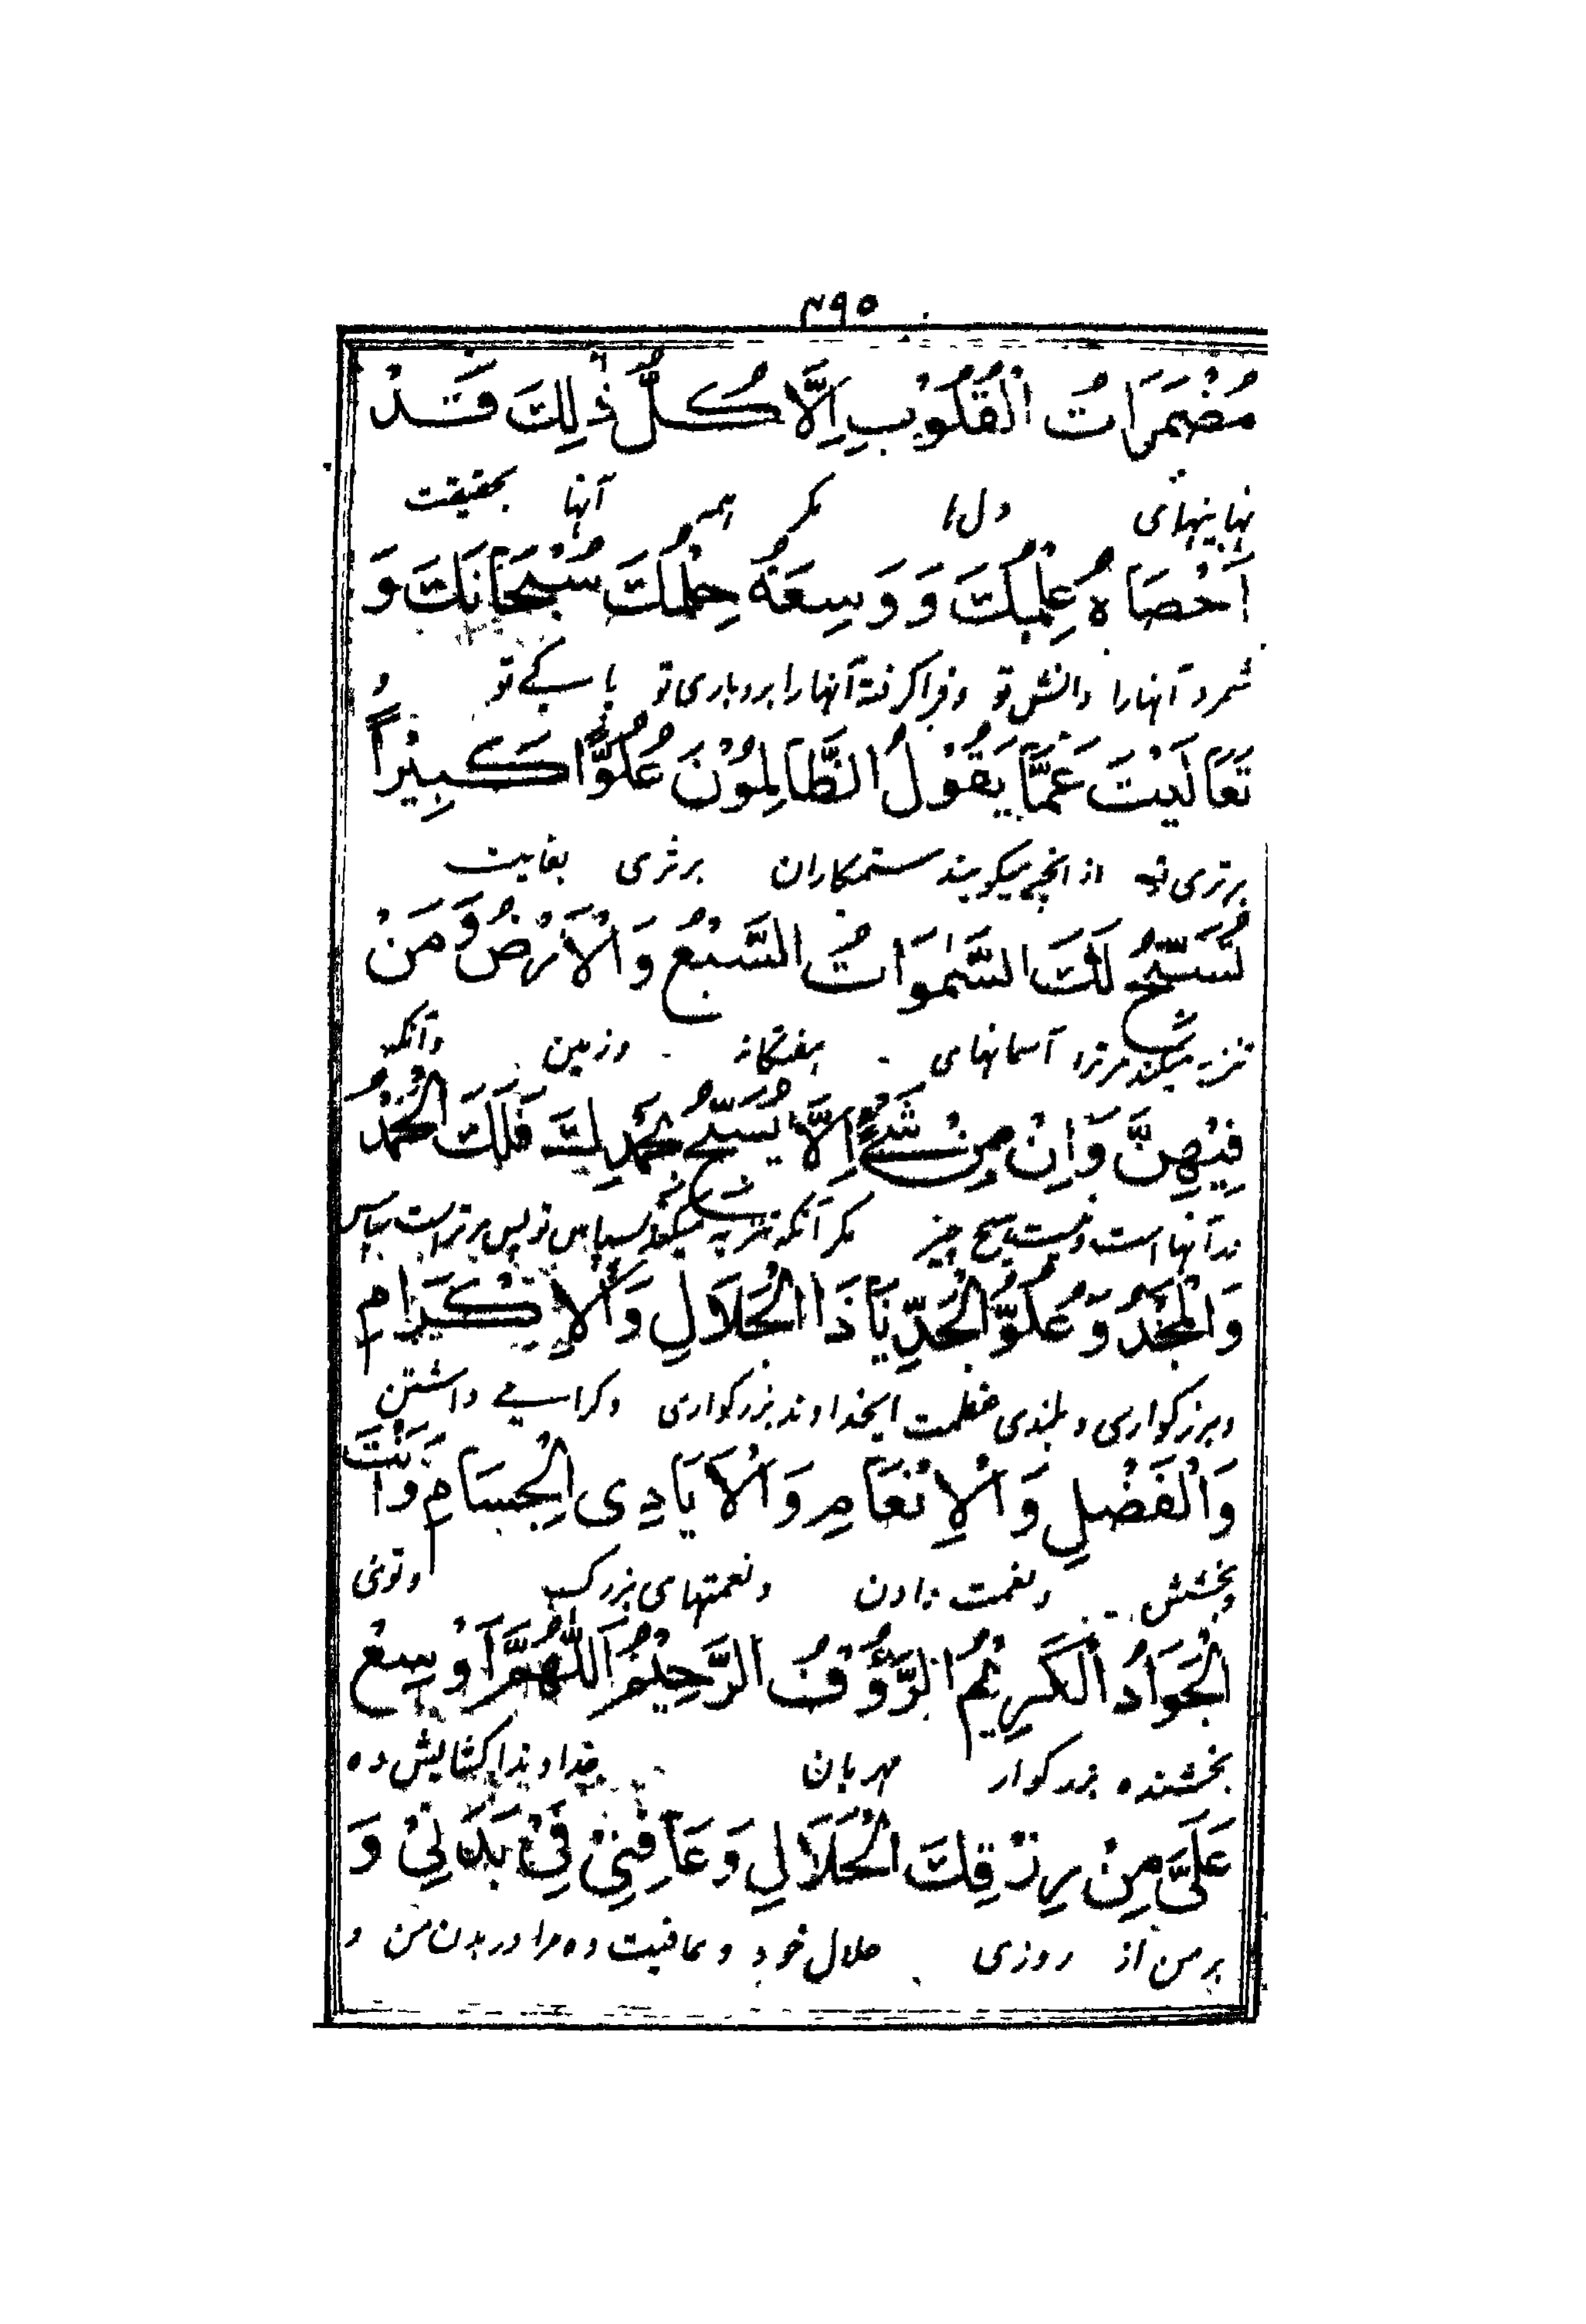 ۴۹۵
مُضْمَرَاتُ الْقُلُوْبِ اِلَّا كُلُّ ذٰلِكَ قَدْ
نهاینهای دلها مکر همه آنها بحقیقت
اَحْصَاهُ عِلْمُكَ وَ وَسِعَهُ حِلْمُكَ سُبْحَانَكَ وَ
شمرد آنهارا دانش تو و فراکرفته آنهارا بردباری تو پاسکے تو و
تَعَالَيْتَ عَمَّا يَقُوْلُ الظَّالِمُوْنَ عُلُوًّا كَبِيْراً
برتری تو از انچه میکویند ستمکاران برتری بغایت
تُسَبِّحُ لَكَ السَّمٰوَاتُ السَّبْعُ وَ الْاَرْضُ وَ مَنْ
تنزیه میکند مرترا آسمانهای هفتکانه و زمین و آنکه
فِيْهِنَّ وَ اِنْ مِنْ شَيْءٍ اِلَّا يُسَبِّحُ بِحَمْدِكَ فَلَكَ الْحَمْدُ
در آنها است و نیست هیچ چیز مکر آنکه تنزیه میکند بسپاس تو پس مرتراست سپاس
وَ الْمَجْدُ وَ عُلُوُّ الْجَدِّ يَا ذَا الْجَلَالِ وَ الْاِكْرَامِ
و بزرکواری و بلندی عظمت ایخداوند بزرکواری و کرامے داشتن
وَ الْفَضْلِ وَ الْاِنْعَامِ وَ الْاَيَادِى الْجِسَامِ وَ اَنْتَ
و بخشش و نعمت دادن و نعمتهای بزرک و توئی
الْجَوَادُ الْكَرِيْمُ الرَّؤُفُ الرَّحِيْمُ اَللّٰهُمَّ اَوْسِعْ
بخشنده بزرکوار مهربان خداوندا کشایش ده
عَلَىَّ مِنْ رِزْقِكَ الْحَلَالِ وَ عَافِنِيْ فِيْ بَدَنِيْ وَ
بر من از روزی حلال خود و عافیت ده مرا در بدن من و